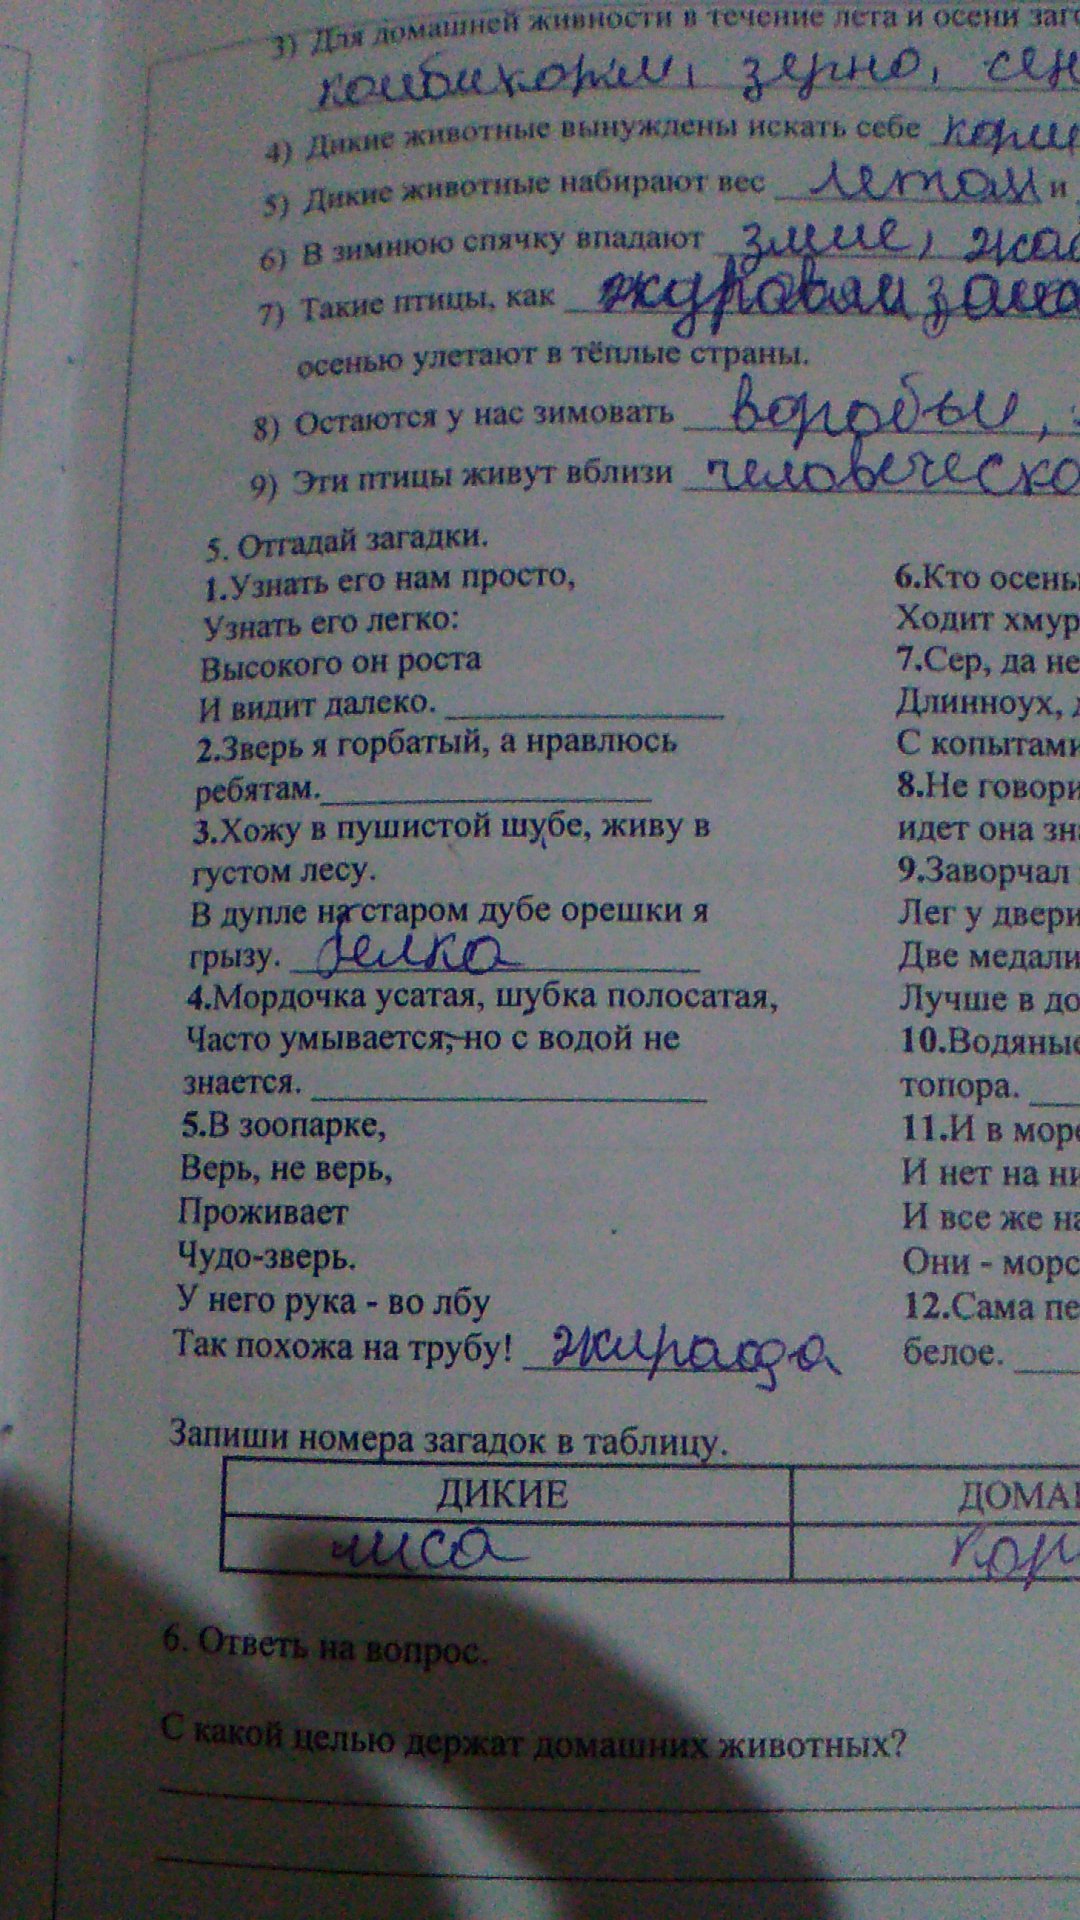 3) Для домашней живности в течение лета и осени заго
комбикорм, зерно, сен
4) Дикие животные вынуждены искать себе корм
5) Дикие животные набирают вес летом и
6) В зимнюю спячку впадают змие, жаб
7) Такие птицы, как
осенью улетают в тёплые страны.
8) Остаются у нас зимовать воробьи,
9) Эти птицы живут вблизи человеческо
5. Отгадай загадки.
1.Узнать его нам просто,
Узнать его легко:
Высокого он роста
И видит далеко.
2.Зверь я горбатый, а нравлюсь
ребятам.
3.Хожу в пушистой шубе, живу в
густом лесу.
В дупле на старом дубе орешки я
грызу. белка
4.Мордочка усатая, шубка полосатая,
Часто умывается, но с водой не
знается.
5.В зоопарке,
Верь, не верь,
Проживает
Чудо-зверь.
У него рука - во лбу
Так похожа на трубу! жирафа
6.Кто осень
Ходит хмур
7.Сер, да не
Длинноух, д
С копытами
8.Не говори
идет она зна
9.Заворчал
Лег у двери
Две медали
Лучше в до
10.Водяные
топора.
11.И в море
И нет на ни
И все же на
Они - морс
12.Сама пе
белое.
Запиши номера загадок в таблицу.
ДИКИЕ ДОМА
лиса кор
6. Ответь на вопрос.
С какой целью держат домашних животных?